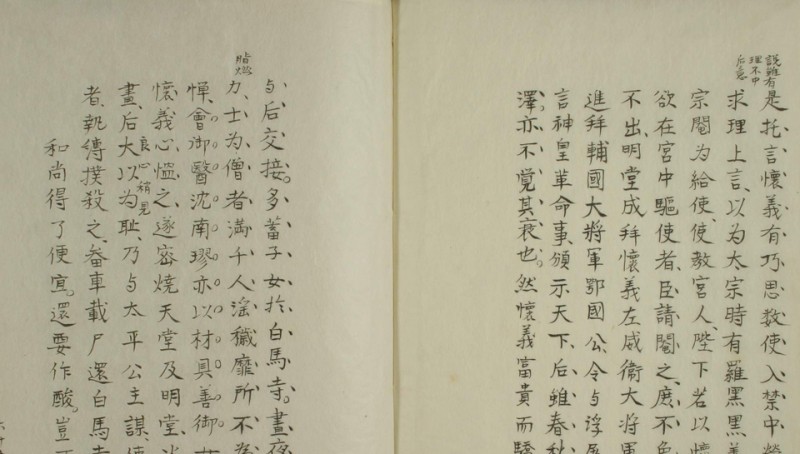 說雖有
理不中
后意
是托言懷義有巧思数使入禁中營
求理上言、以为太宗時有羅黑黑善
宗閹为給使、使教宫人、陛下若以懷
欲在宫中驅使者、臣請閹之、庶不
不出明堂成拜懷義左威衛大将軍
進拜輔國大将軍鄂國公、令与浮屠
言神皇革命事、頒示天下、后雖春秋
澤、亦不覺其衰也。然懷義富貴而驕
与后交接。多蓄子女扵白馬寺。晝夜
力、士为僧者满千人淫穢靡所不為
惮、會御醫沈南璆亦以材具善御女
懷義心愠之、遂密燒天堂及明堂、
良心稍見
畫、后大以为耻、乃与太平公主謀、使
者、執縛撲殺之、畚車載尸還白馬寺
和尚得了便宜。還要作酸。豈